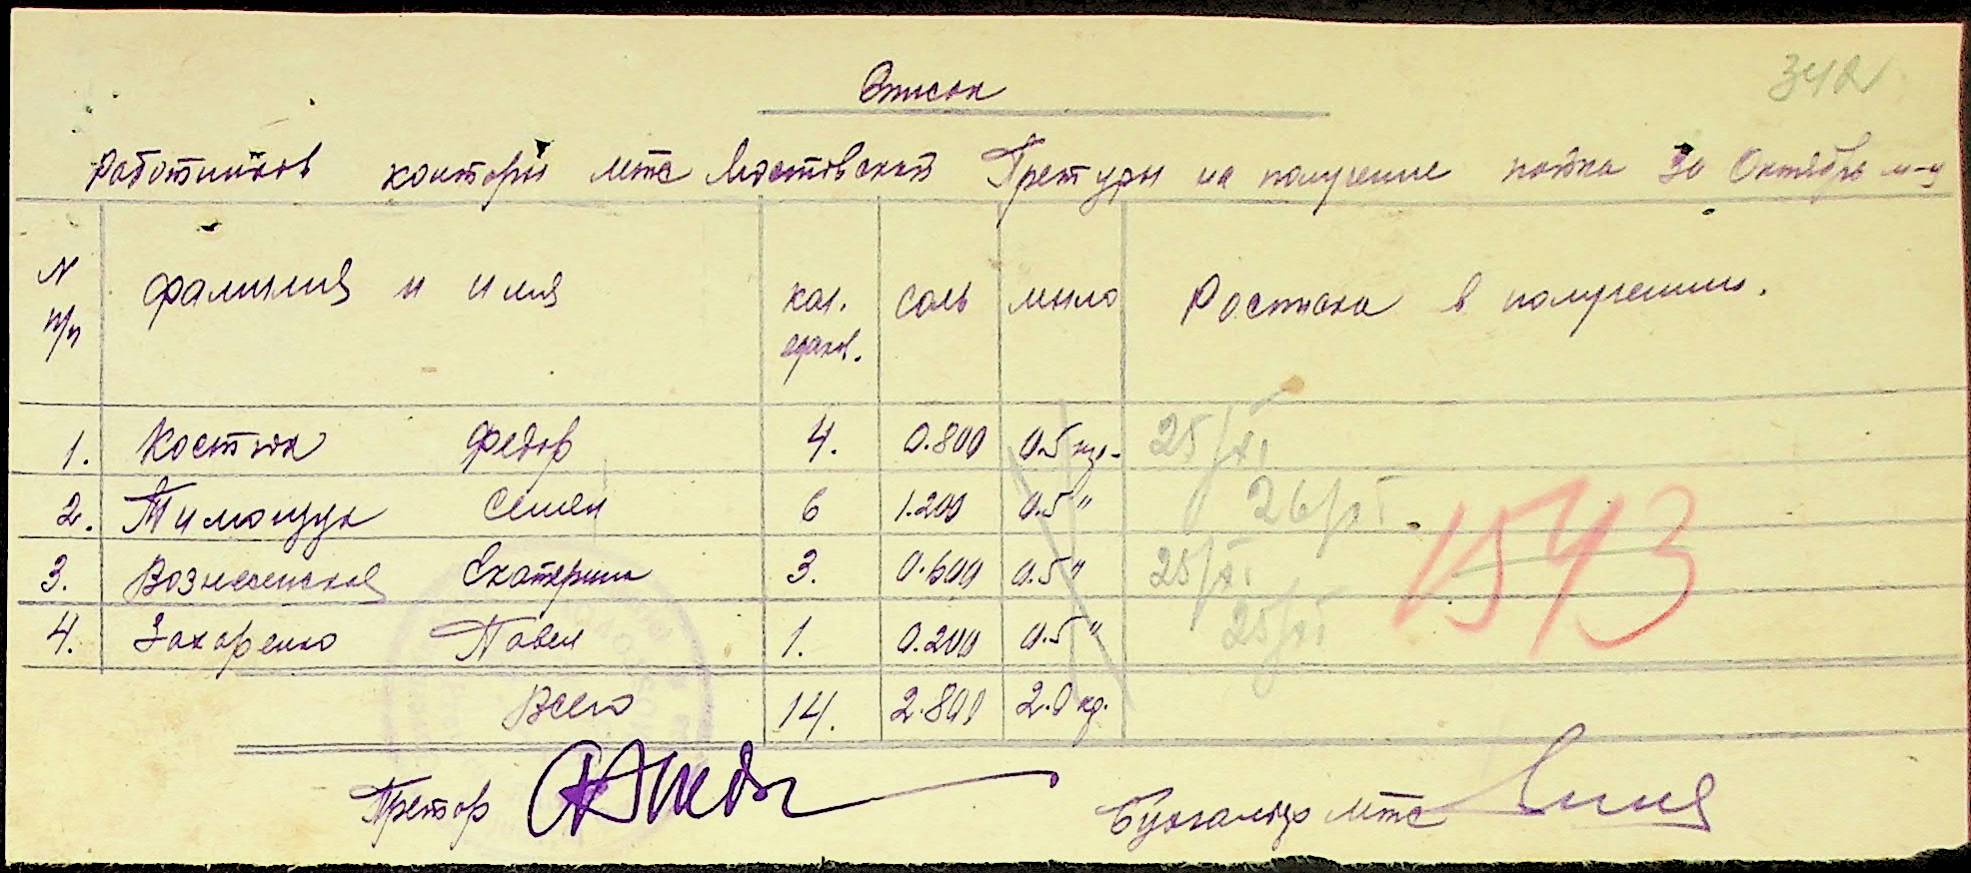 342
Список
Работников конторы мтс Мостовской Претуры на получение пайка за Октябрь м-ц
N п/п
Фамилия и имя
кол. едаков.
соль
мыло
Росписка в получении.
1. Костюк Федор 4. 0.800 0.5 кгр. 25/XI
2. Тимощук Семен 6 1.200 0.5 " 26/XI
3. Вознесенская Екатерина 3. 0.600 0.5 " 25/XI
4. Захаренко Павел 1. 0.200 0.5 " 25/XI
1543
Всего 14. 2.800 2.0 кг.
Претор
Бухгалтер мтс